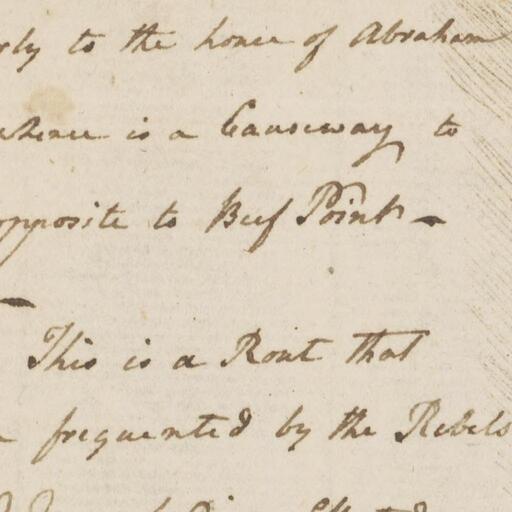 to the house of Abraham
is a Causeway to
opposite to Beef Point -
-
This is a Rout that
frequented by the Rebels